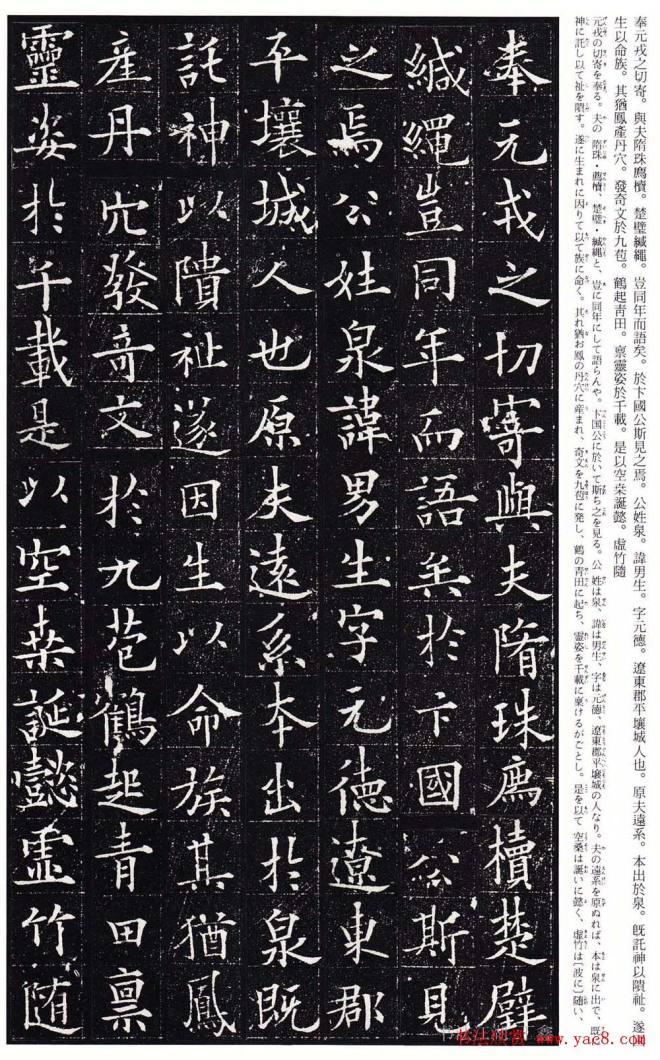 奉元戎之切寄。與夫隋珠廌櫝。楚璧緘繩。豈同年而語矣。於卞國公斯見之焉。公姓泉。諱男生。字元德。遼東郡平壤城人也。原夫遠系。本出於泉。既託神以隤祉。遂因
生以命族。其猶鳳產丹穴。發奇文於九苞。鶴起靑田。禀靈姿於千載。是以空桒誕懿。虛竹隨
元戎の切寄を奉る。夫の隋珠・廌櫝、楚璧・緘繩と、豈に同年にして語らんや。卞国公に於いて斯ち之を見る。公 姓は泉、諱は男生、字は元徳、遼東郡平壤城の人なり。夫の遠系を原ぬれば、本は泉に出で、既
神に託し以て祉を隤す。遂に生まれに因りて以て族に命く。其れ猶お鳳の丹穴に産まれ、奇文を九苞に発し、鶴の青田に起ち、霊姿を千載に稟けるがごとし。是を以て 空桑は誕いに懿く、虚竹は〔波に〕随い、
奉元戎之切寄與夫隋珠廌櫝楚璧
緘繩豈同年而語矣於卞國公斯見
之焉公姓泉諱男生字元德遼東郡
平壤城人也原夫遠系本出於泉既
託神以隤祉遂因生以命族其猶鳳
產丹穴發奇文於九苞鶴起青田禀
靈姿於千載是以空桒誕懿虛竹隨
书法欣赏 www.yac8.com